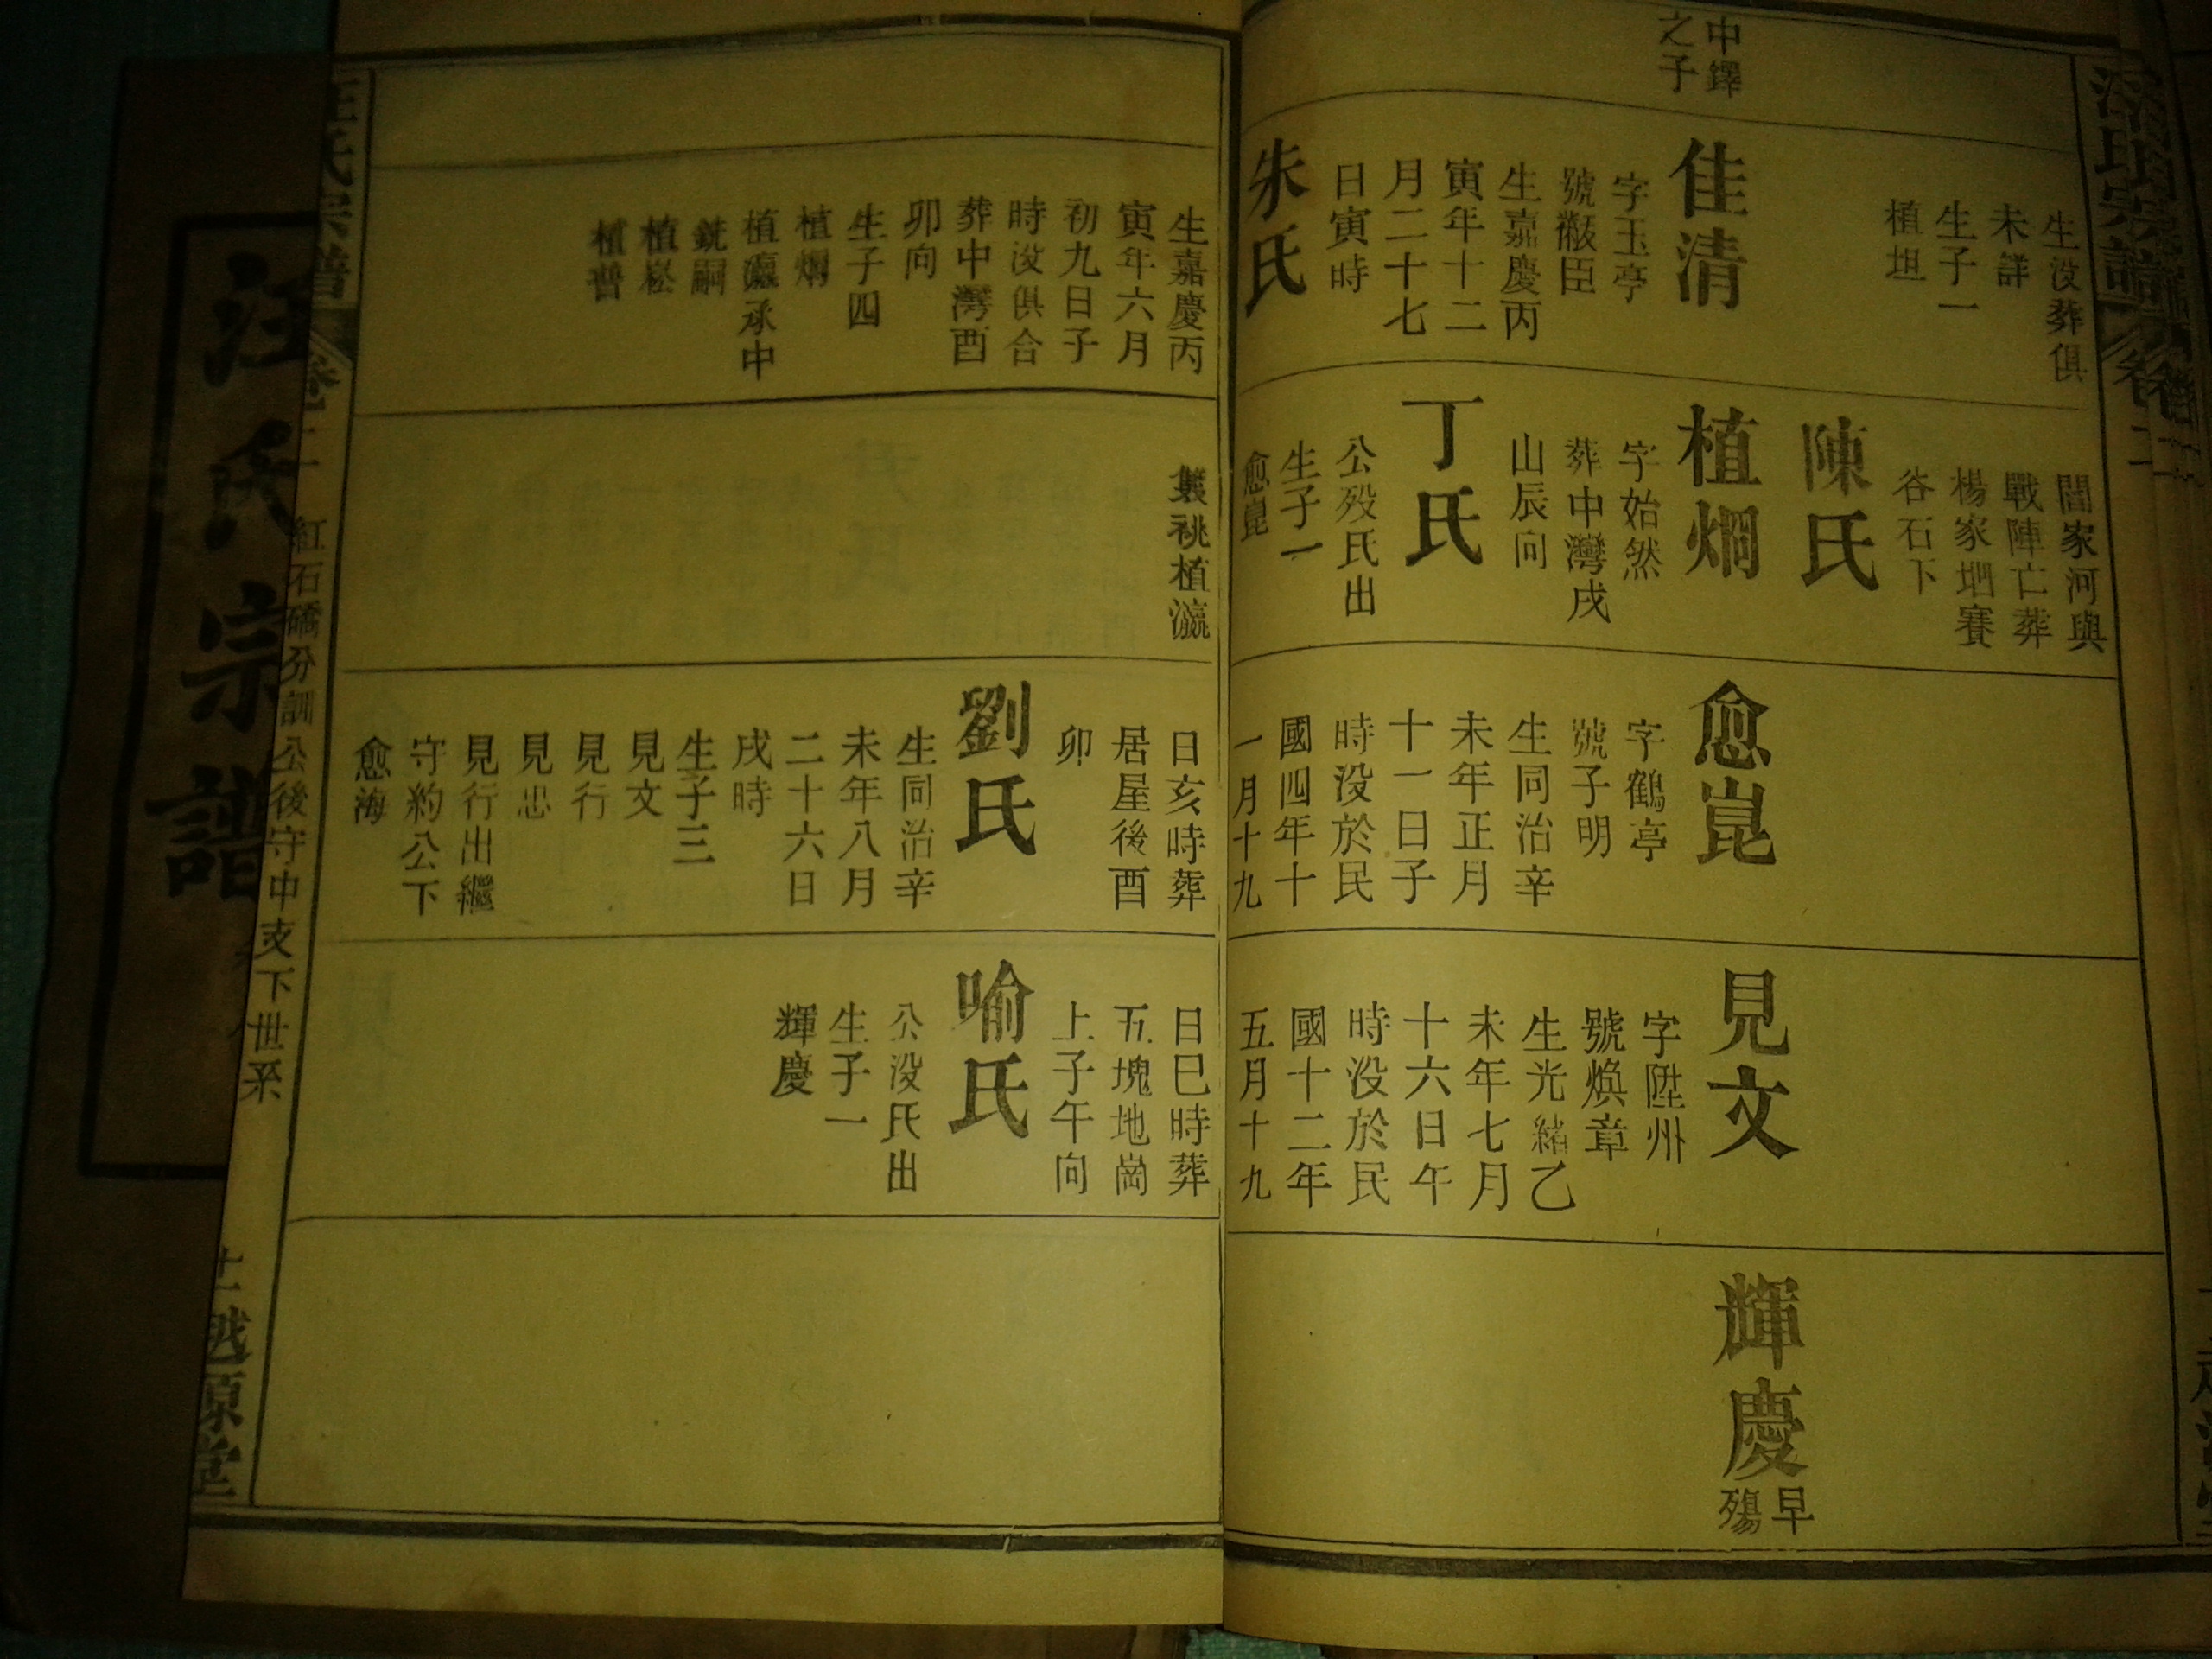 中鐸
之子
生沒葬俱
未詳
生子一
植坦
佳清
字玉亭
號黻臣
生嘉慶丙
寅年十二
月二十七
日寅時
朱氏
生嘉慶丙
寅年六月
初九日子
時沒俱合
葬中灣酉
卯向
生子四
植烱
植瀛承中
銑嗣
植崧
植普
閻家河與
戰陣亡葬
楊家垇賽
谷石下
陳氏
植烱
字始然
葬中灣戌
山辰向
丁氏
公歿氏出
生子一
愈崑
兼祧植瀛
愈崑
字鶴亭
號子明
生同治辛
未年正月
十一日子
時沒於民
國四年十
一月十九
日亥時葬
居屋後酉
卯
劉氏
生同治辛
未年八月
二十六日
戌時
生子三
見文
見行
見忠
見行出繼
守約公下
愈海
見文
字陞州
號煥章
生光緒乙
未年七月
十六日午
時沒於民
國十二年
五月十九
日巳時葬
五塊地崗
上子午向
喻氏
公沒氏出
生子一
輝慶
輝慶
早
殤
汪氏宗譜 卷二 紅石礄分訓公後守中支下世系 十一 越原堂
汪氏宗譜